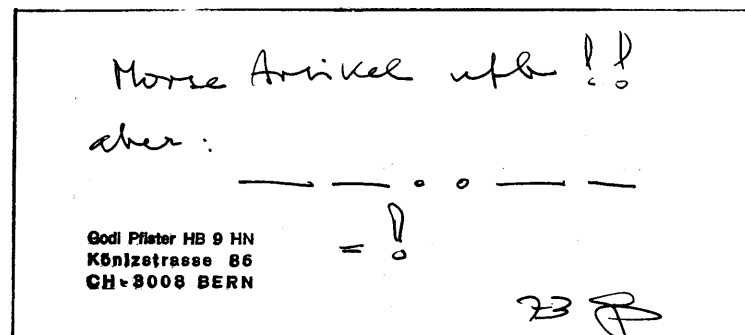 Morse Artikel ufb !!
aber:
— — . . — —
= !
Godi Pfister HB 9 HN
Könizstrasse 86
CH-3008 BERN
73